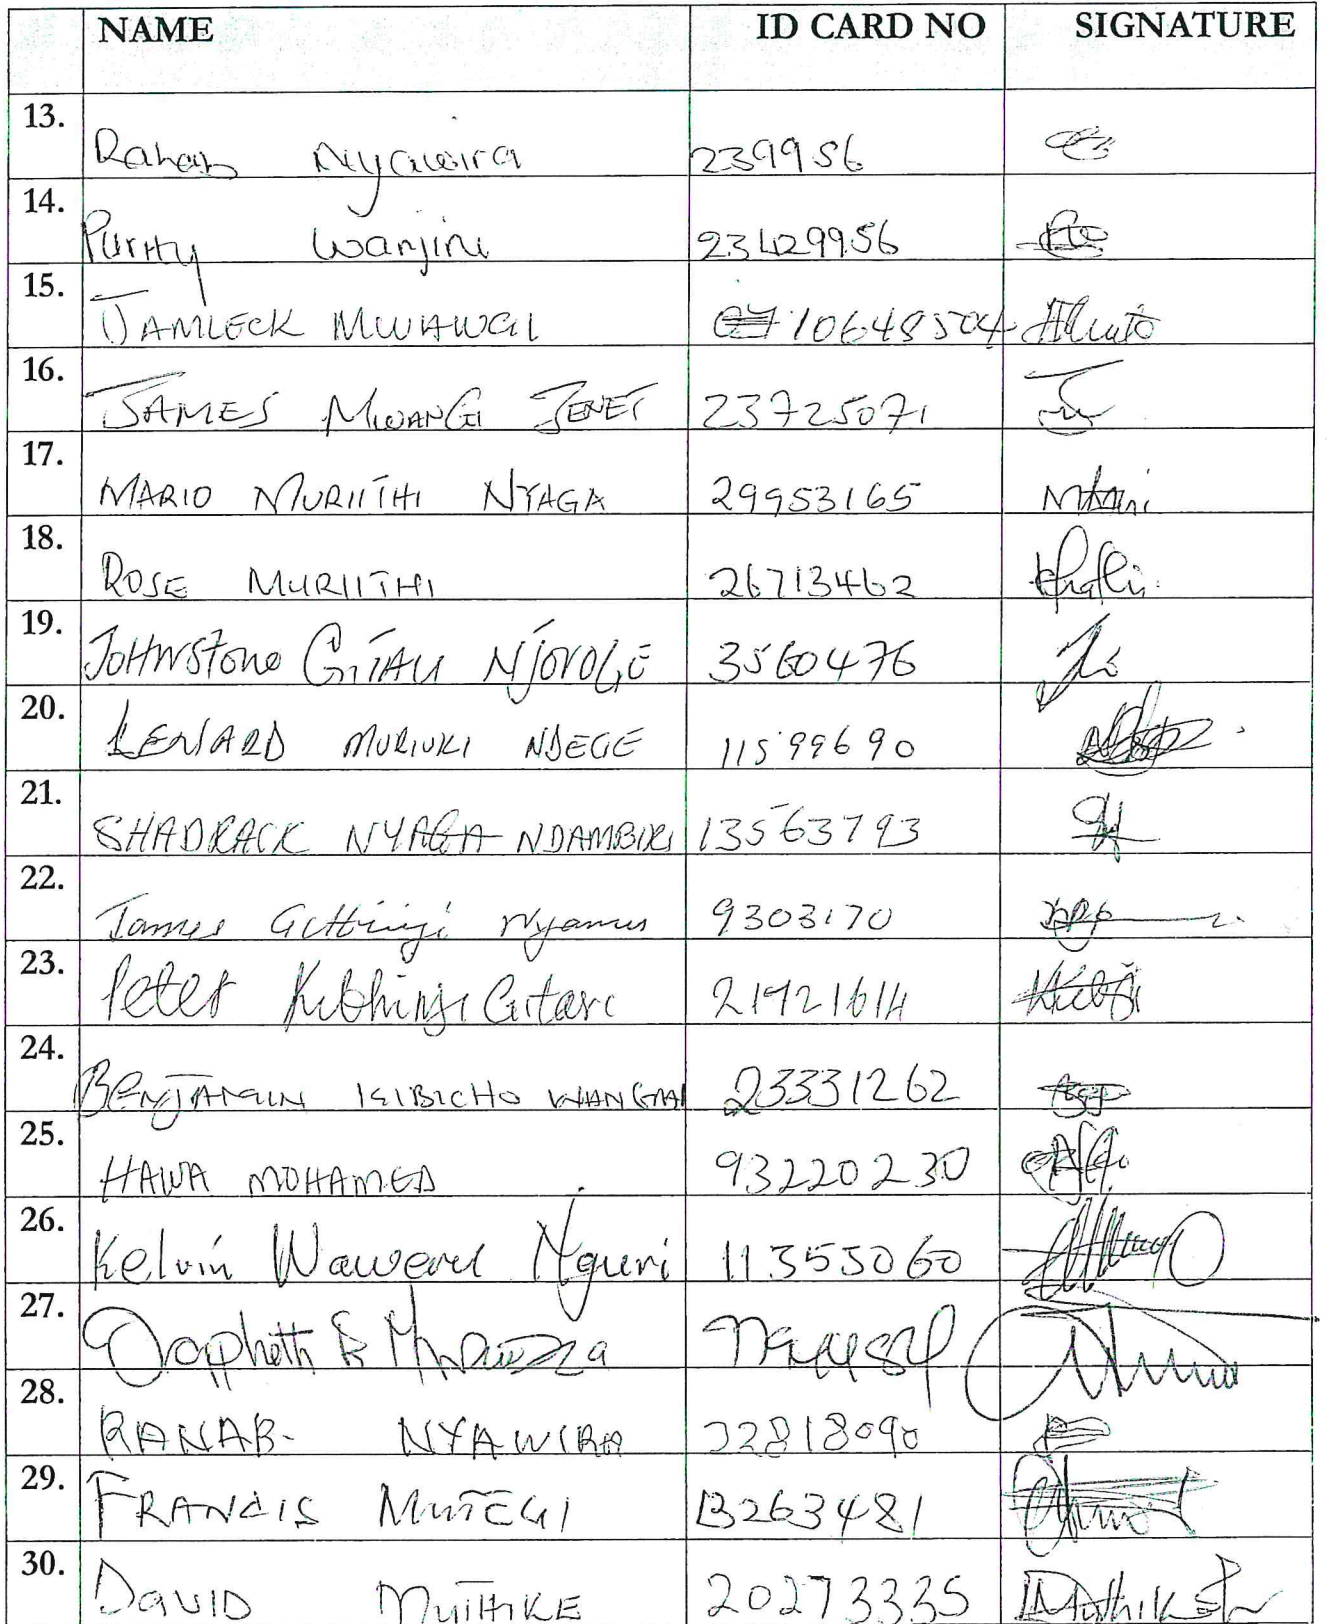 NAME ID CARD NO SIGNATURE
13. Rahab Nyawira 239956
14. Purity Wanjiru 23429956
15. JAMLECK MWAWGI 10648504
16. JAMES MWANGI JENET 23725071
17. MARIO MURIITHI NYAGA 29953165
18. ROSE MURIITHI 26713462
19. JOHNSTONE GITAU NJOROGE 3560476
20. LENARD MURIUKI NDEGE 11599690
21. SHADRACK NYAGA NDAMBIRI 13563793
22. James Githinji 9303170
23. Peter Kibhinji Gitari
24. BENJAMIN KIBICHO WANGMAI 23331262
25. HAWA MOHAMED 93220230
26. Kelvin Waweru Nguri 113553060
27.
28. RAHAB NYAWIRA 22818090
29. FRANCIS MUTEGI 13263481
30. DAVID MUTHIKE 20273335